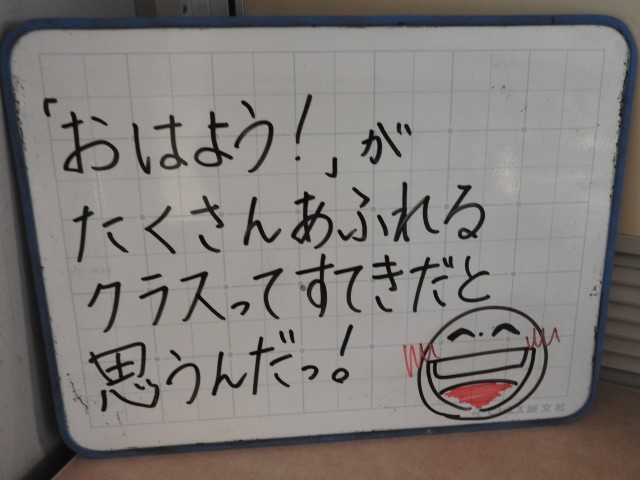 「おはよう！」が
たくさんあふれる
クラスってすてきだと
思うんだっ！